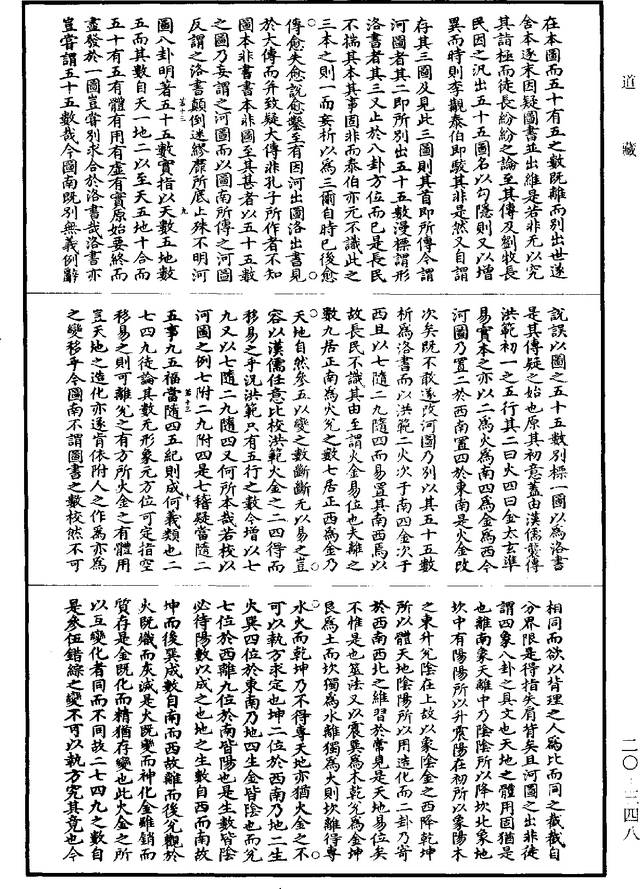 道藏
在本圖而五十有五之數既離而別出世遂
舍本逐末因疑圖書並出維是若非无以究
其詰極而徒長紛紛之論至其傳及劉牧長
民因之汎出五十五圖名以勾隱則又以增
異而時則李觀泰伯即駮其非是然又自謂
存其三圖及見此三圖則其首即所傳今謂
河圖者其二即所別出五十五數漫標謂形
洛書者其三又止於八卦方位而已是長民
不揣其本其事固非而泰伯亦元不識此之
三本之則一而妄析以為三爾自時已後愈
傳愈失愈說愈鑿至有因河出圖洛出書見
於大傳而并致疑大傳非孔子所作者不知
圖本非書書本非圖至其甚者以五十五數
之圖乃妄謂之河圖而以圖南所傳之河圖
反謂之洛書顛倒迷繆靡所底止殊不明河
圖八卦明著五十五數實指以天數五地數
五而其數自天一地二以至天五地十合而
五十有五有體有用有虛有實原始要終而
盡發於一圖豈嘗別求合於洛書哉洛書亦
豈嘗謂五十五數哉今圖南既別無義例辭
說誤以圖之五十五數別標一圖以為洛書
是其傳疑之始也原其初意蓋由漢儒襲傳
洪範初一之五行其二曰火四曰金太玄準
易實本之亦以二為火為南四為金為西今
河圖乃置二於西南置四於東南是火金改
次矣既不敢遂改河圖乃別以其五十五數
析為洛書而以洪範二火次于南四金次于
西且以七隨二九隨四而易置其南西焉以
故長民不識其由至謂火金易位也夫離之
數九居正南為火兌之數七居正西為金乃
天地自然參五以變之數斷斷无以易之豈
容以漢儒任意比校洪範火金之二四得而
移易之乎況洪範只有五行之數今增以七
九又以七隨二九隨四又何所本哉若校以
河圖之例七附二九附四是七稽疑當隨二
五事九五福當隨四五紀則成何義類也二
七四九徒論其數无形象元方位可定指空
移易之則可離兌之有方所火金之有體用
豈天地之造化亦遂肯依附人之作為亦為
之變移乎今圖南不謂圖書之數校然不可
相同而欲以背理之人為比而同之截截自
分界限是得指失肩背矣且河圖之出非徒
謂四象八卦之具文也天地之體用固猶是
也離南象天離中乃陰陰所以降坎北象地
坎中有陽陽所以升震陽在初所以象陽木
之東升兌陰在上故以象陰金之西降乾坤
所以體天地陰陽所以用造化而二卦乃寄
於西南西北之維習於常見是天地易位矣
不惟是也筮法又以震巽為木乾兌為金坤
艮為土而坎獨為水離獨為火則坎離得專
水火而乾坤乃不得專天地亦猶火金之不
可以執方求定也坤二位於西南乃地二生
火巽四位於東南乃地四生金皆陰也而兌
七位於西離九位於南皆陽也是生數皆陰
必待陽數以成之也地之生數自西而南故
坤而後巽成數自南而西故離而後兌觀於
火既熾而灰滅是火既變而神化金雖銷而
質存是金既化而精猶存變也此火金之所
以互變化者同而不同故二七四九之數自
是參伍錯綜之變不可以執方究其竟也今
二〇—三四八